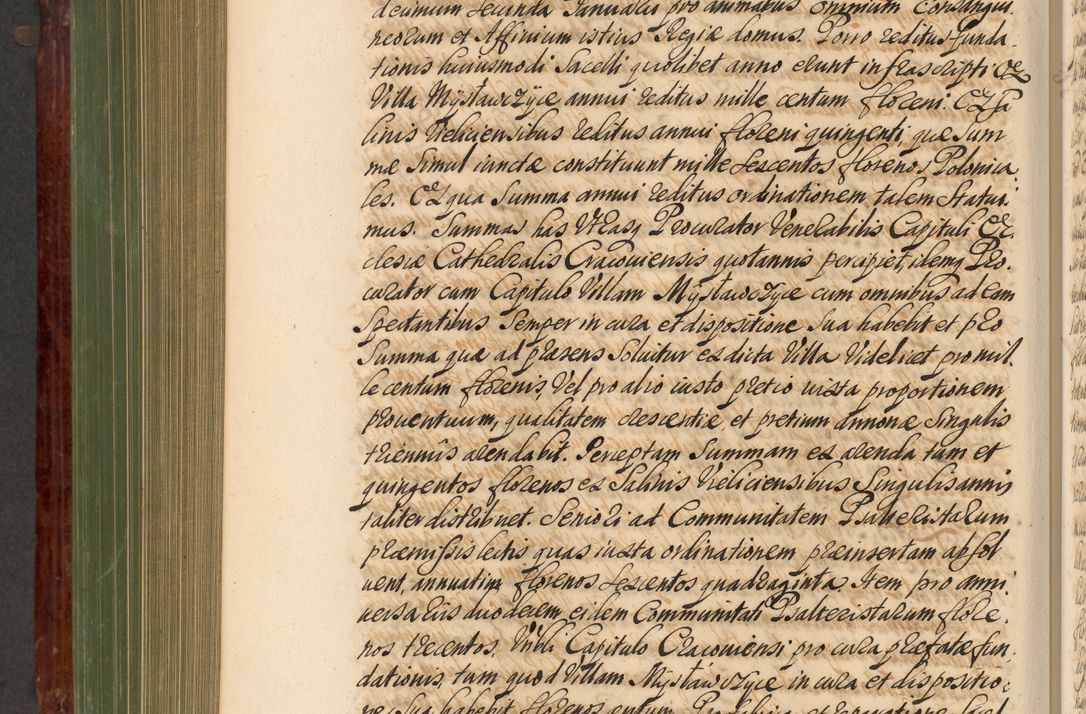 decimum Secunda Januarii pro animabus omnium Consangui
neorum et Affinium istius Regiæ domus. Porro reditus funda
tionis huiusmodi Sacelli quolibet anno erunt infrascripti Ex
Villa Mysławczyce annui reditus mille centum floreni. Ex Sa
linis Veliciensibus reditus annui floreni quingenti, quæ Sum
mæ Simul iunctæ constituunt mille Sescentos florenos Polonica
les. Ex qua Summa annui reditus ordinationem talem Statui
mus. Summas has Utrasq Procurator Venerabilis Capituli Ec
clesiæ Cathedralis Cracoviensis quotannis percipiet, idemq Pro
curator cum Capitulo Villam Mysławczyce cum omnibus ad eam
Spectantibus Semper in cura et dispositione Sua habebit et pro
Summa quæ ad præsens Solvitur ex dicta Villa Videlicet pro mil
le centum florenis, Vel pro alio iusto pretio iuxta proportionem
proventuum, qualitatem crescentiæ, et pretium annonæ Singulis
trienniis arendabit. Perceptam Summam ex arenda tum et
quingentos florenos ex Salinis Veliciensibus Singulis annis
taliter distribuet. Seniori ad Communitatem Psalteristarum
præmissis lectis quas iuxta ordinationem præinsertam absol
vent, annuatim florenos Sescentos quadraginta. Item pro anni
versariis duodecim eidem Communitati Psalteristarum flore
nos trecentos. Vbli Capitulo Cracoviensi pro cura præfatæ fun
dationis, tum quod Villam Mysławczyce in cura et dispositio
ne Sua habebit florenos centum